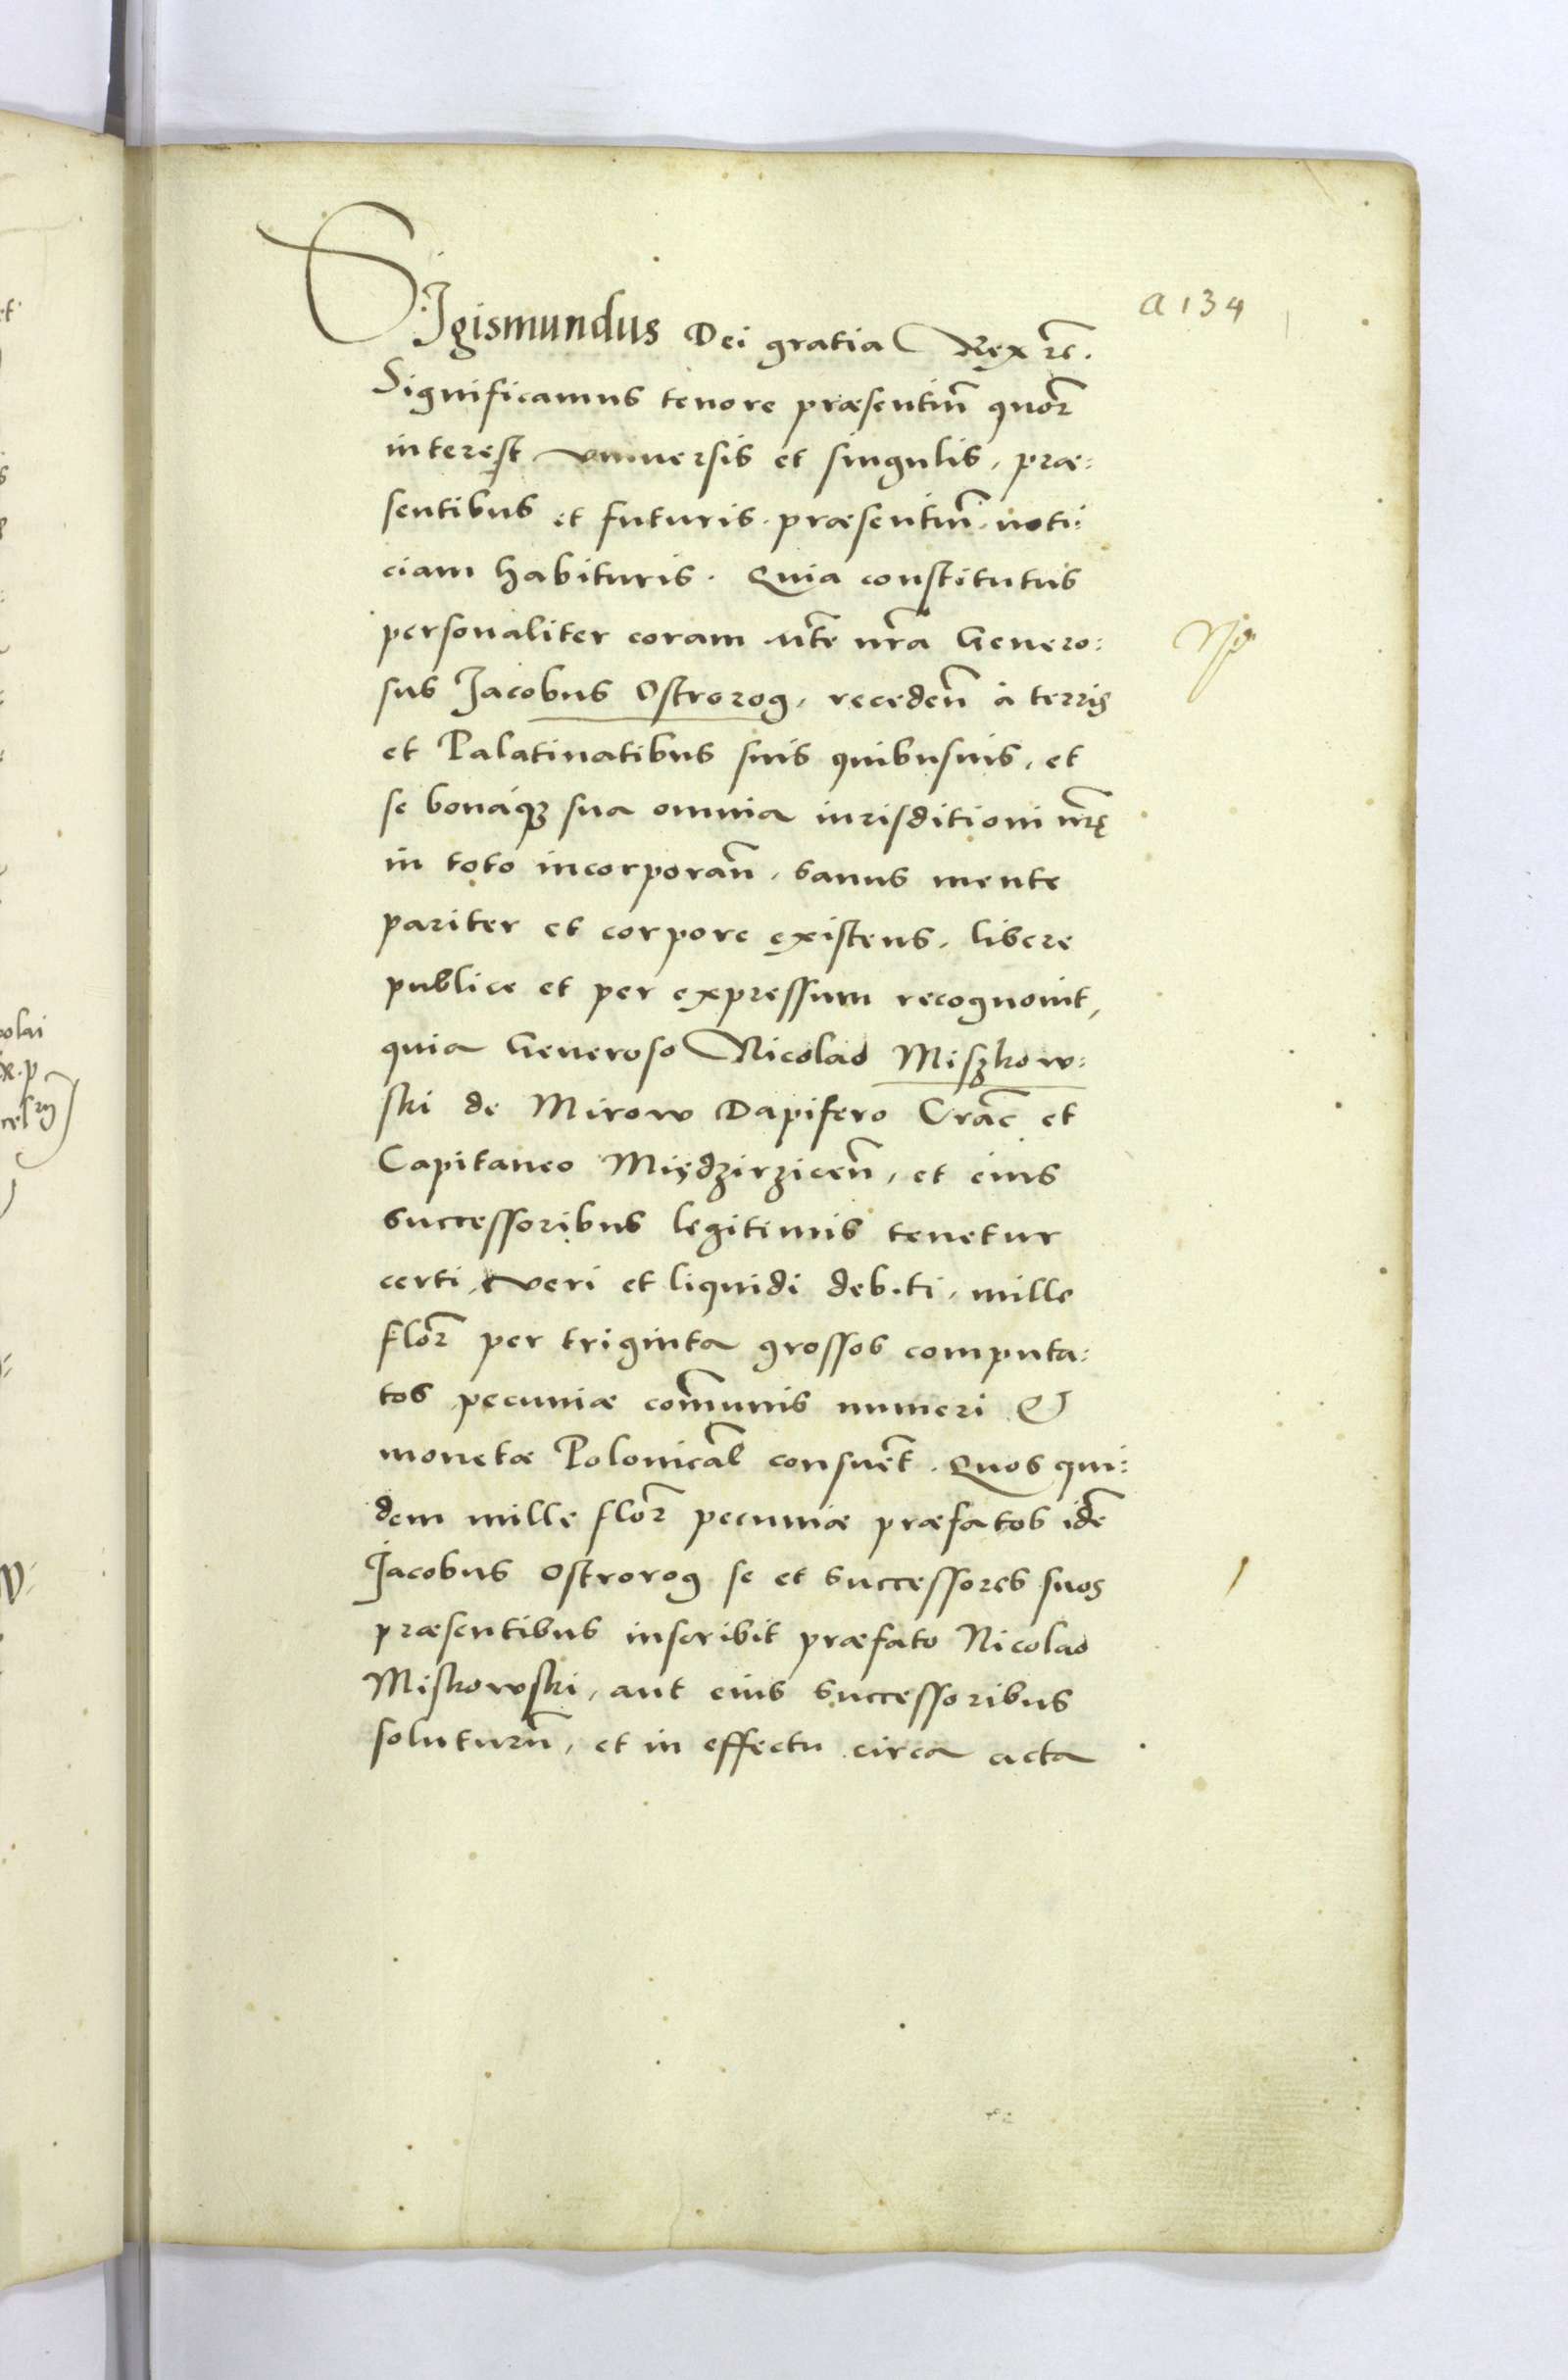 a 134
SIgismundus Dei gratia Rex ꝛc.
Significamus tenore præsentiū quoꝝ
interest vniuersis et singulis, præ:
sentibus et futuris præsentiū noti:
ciam habituris. Quia constitutus
personaliter coram Mte nr̄a Genero:
sus Jacobus Ostrorog, recedeñ à terris
et Palatinatibus suis quibusuis, et
se bonaq́ꝫ sua omnia iurisditioni nr̄ę
in toto incorporañ, sanus mente
pariter et corpore existens, libere
publice et per expressum recognouit,
quia Generoso Nicolao Miszkow:
ski de Mirow Dapifero Crac̄ et
Capitaneo Międzirziceñ, et eius
successoribus legitimis tenetur
certi, veri et liquidi debiti, mille
floꝝ per triginta grossos computa:
tos pecuniæ com̄unis numeri &
monetæ Polonical̄ consuet̄. Quos qui:
dem mille floꝝ pecuniæ præfatos idē
Jacobus Ostrorog se et successores suos
præsentibus inscribit præfato Nicolao
Miskowski, aut eius successoribus
soluturū, et in effectu circa acta